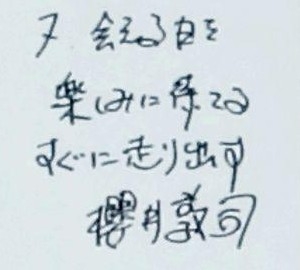 又 会える日を
楽しみに待ってる
すぐに走り出す
櫻井敦司